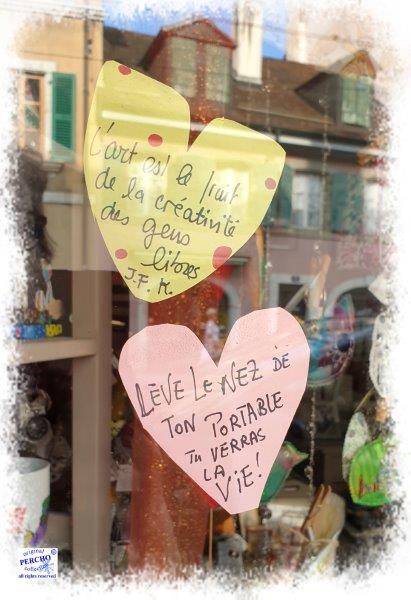 L'art est le fruit
de la créativité
des gens
libres
J.F.K.
LÈVE LE NEZ DE
TON PORTABLE
TU VERRAS
LA
VIE!
original
PERCHO
collection
all rights reserved